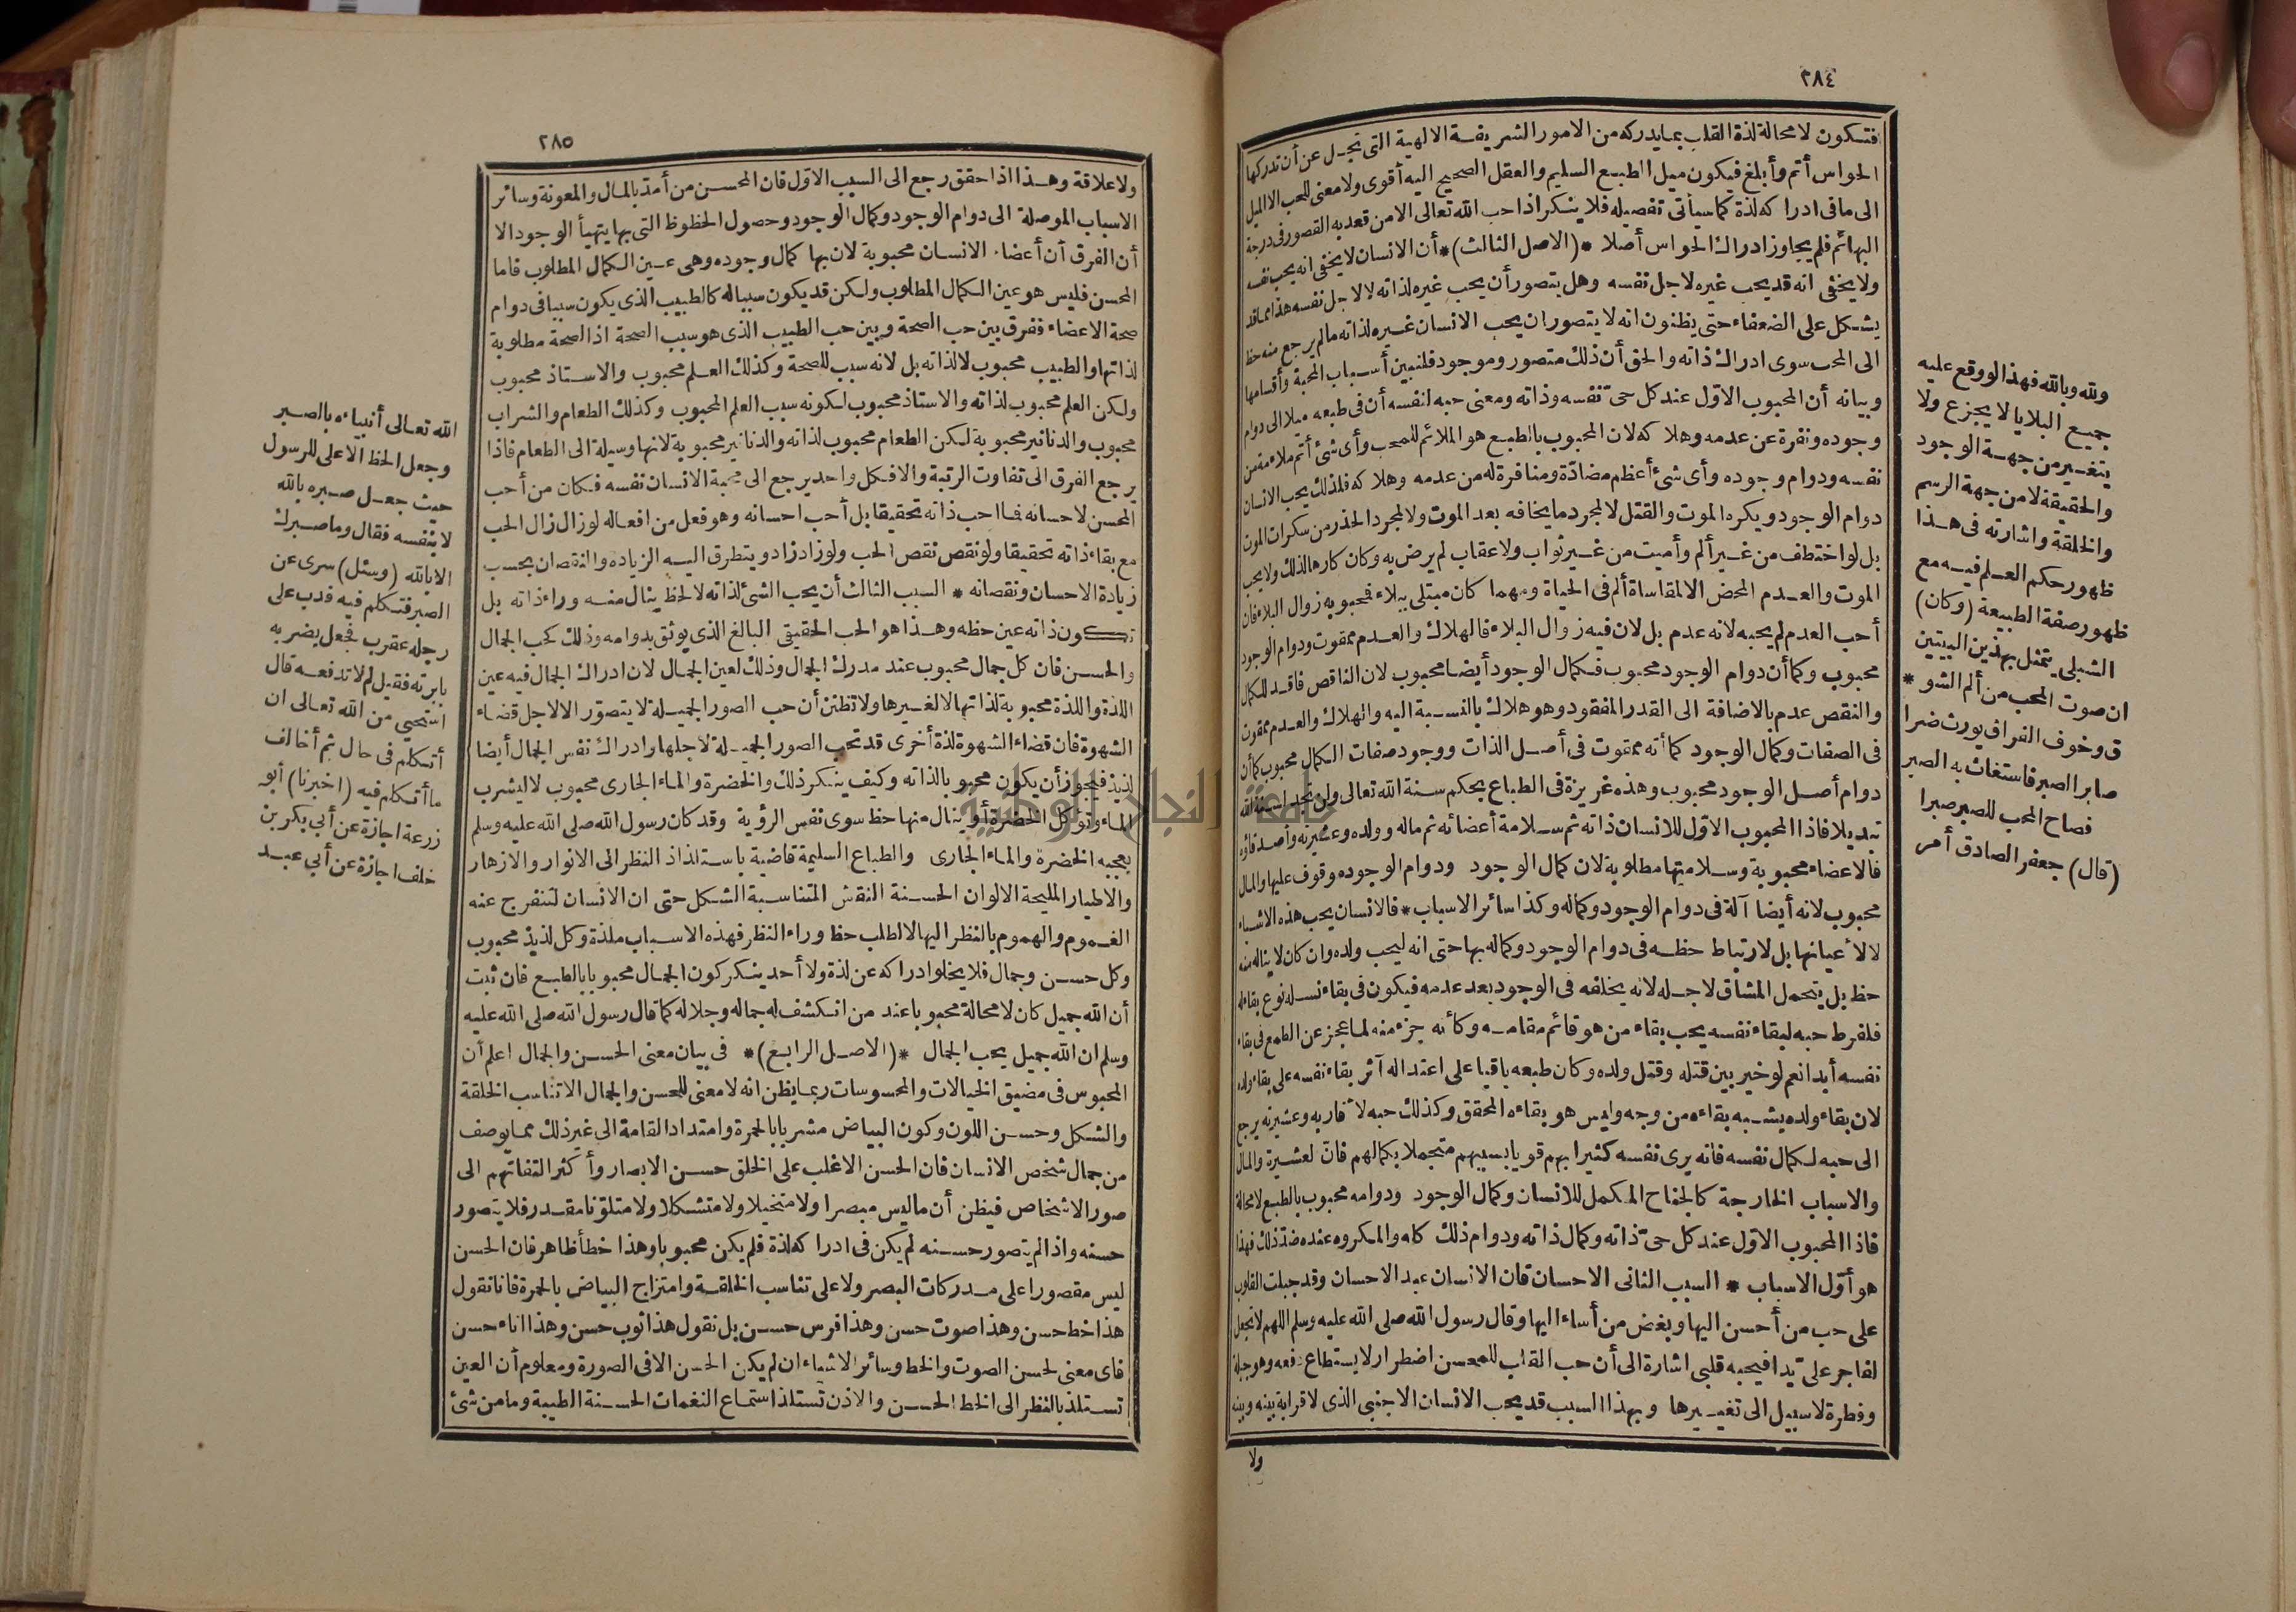 ٢٨٤
فتكون لا محالة لذة القلب بما يدركه من الامور الشريفة الالهية التى تجل عن أن تدركها
الحواس أتم وأبلغ فيكون ميل الطبع السليم والعقل الصحيح اليه أقوى ولا معنى للحب الا الميل
الى ما فى ادراكه لذة كما سيأتى تفصيله فلا ينكر اذا حب الله تعالى الا من قعد به القصور فى درجة
البهائم فلم يجاوز ادراك الحواس أصلا *(الاصل الثالث)* أن الانسان لا يخفى انه يحب نفسه
ولا يخفى انه قد يحب غيره لاجل نفسه وهل يتصور أن يحب غيره لذاته لا لاجل نفسه هذا مما قد
يشكل على الضعفاء حتى يظنون انه لا يتصور ان يحب الانسان غيره لذاته ما لم يرجع منه حظ
الى المحب سوى ادراك ذاته والحق أن ذلك متصور وموجود فلنبين أسباب المحبة وأقسامها
وبيانه أن المحبوب الاول عند كل حى نفسه وذاته ومعنى حبه لنفسه أن فى طبعه ميلا الى دوام
وجوده ونفرة عن عدمه وهلاكه لان المحبوب بالطبع هو الملائم للمحب وأى شئ أتم ملاءمة من
نفسه ودوام وجوده وأى شئ أعظم مضادة ومنافرة له من عدمه وهلاكه فلذلك يحب الانسان
دوام الوجود ويكره الموت والقتل لا لمجرد ما يخافه بعد الموت ولا لمجرد الحذر من سكرات الموت
بل لو اختطف من غير ألم وأميت من غير ثواب ولا عقاب لم يرض به وكان كارها لذلك ولا يحب
الموت والعدم المحض الا لمقاساة ألم فى الحياة ومهما كان مبتلى ببلاء فمحبوبه زوال البلاء فان
أحب العدم لم يحبه لانه عدم بل لان فيه زوال البلاء فالهلاك والعدم ممقوت ودوام الوجود
محبوب وكما أن دوام الوجود محبوب فكمال الوجود أيضا محبوب لان الناقص فاقد للكمال
والنقص عدم بالاضافة الى القدر المفقود وهو هلاك بالنسبة اليه والهلاك والعدم ممقوت
فى الصفات وكمال الوجود كما أنه ممقوت فى أصل الذات ووجود صفات الكمال محبوب كما أن
دوام أصل الوجود محبوب وهذه غريزة فى الطباع بحكم سنة الله تعالى ولن تجد لسنة الله
تبديلا فاذا المحبوب الاول للانسان ذاته ثم سلامة أعضائه ثم ماله وولده وعشيرته وأصدقاؤه
فالاعضاء محبوبة وسلامتها مطلوبة لان كمال الوجود ودوام الوجود موقوف عليها والمال
محبوب لانه أيضا آلة فى دوام الوجود وكماله وكذا سائر الاسباب * فالانسان يحب هذه الاشياء
لا لأعيانها بل لارتباط حظه فى دوام الوجود وكماله بها حتى انه ليحب ولده وان كان لا يناله منه
حظ بل يتحمل المشاق لاجله لانه يخلفه فى الوجود بعد عدمه فيكون فى بقاء نسله نوع بقاء له
فلفرط حبه لبقاء نفسه يحب بقاء من هو قائم مقامه وكأنه جزء منه لما عجز عن الطمع فى بقاء
نفسه أبدا نعم لو خير بين قتله وقتل ولده وكان طبعه باقيا على اعتداله آثر بقاء نفسه على بقاء ولده
لان بقاء ولده يشبه بقاءه من وجه وليس هو بقاءه المحقق وكذلك حبه لأقاربه وعشيرته يرجع
الى حبه لكمال نفسه فانه يرى نفسه كثيرا بهم قويا بسببهم متجملا بكمالهم فان لعشيرة والمال
والاسباب الخارجة كالجناح المكمل للانسان وكمال الوجود ودوامه محبوب بالطبع لا محالة
فاذا المحبوب الاول عند كل حى ذاته وكمال ذاته ودوام ذلك كله والمكروه عنده ضد ذلك فهذا
هو أول الاسباب * السبب الثانى الاحسان فان الانسان عبد الاحسان وقد جبلت القلوب
على حب من أحسن اليها وبغض من أساء اليها وقال رسول الله صلى الله عليه وسلم اللهم لا تجعل
لفاجر على يدا فيحبه قلبى اشارة الى أن حب القلب للمحسن اضطرار لا يستطاع دفعه وهو جبلة
وفطرة لا سبيل الى تغييرها وبهذا السبب قد يحب الانسان الاجنبى الذى لا قرابة بينه وبينه
ولا
ولله وبالله فهذا لو وقع عليه
جميع البلايا لا يجزع ولا
يتغير من جهة الوجود
والحقيقة لا من جهة الرسم
والخلقة واشارته فى هذا
ظهور حكم العلم فيه مع
ظهور صفة الطبيعة (وكان)
الشبلى يتمثل بهذين البيتين
ان صوت المحب من ألم الشو *
ق وخوف الفراق يورث ضرا
صابر الصبر فاستغاث به الصبر
فصاح المحب للصبر صبرا
(قال) جعفر الصادق أمر
٢٨٥
ولا علاقة وهذا اذا حقق رجع الى السبب الاول فان المحسن من أمد بالمال والمعونة وسائر
الاسباب الموصلة الى دوام الوجود وكمال الوجود وحصول الحظوظ التى بها يتهيأ الوجود الا
أن الفرق أن أعضاء الانسان محبوبة لان بها كمال وجوده وهى عين الكمال المطلوب فاما
المحسن فليس هو عين الكمال المطلوب ولكن قد يكون سببا له كالطبيب الذى يكون سببا فى دوام
صحة الاعضاء ففرق بين حب الصحة وبين حب الطبيب الذى هو سبب الصحة اذ الصحة مطلوبة
لذاتها والطبيب محبوب لا لذاته بل لانه سبب للصحة وكذلك العلم محبوب والاستاذ محبوب
ولكن العلم محبوب لذاته والاستاذ محبوب لكونه سبب العلم المحبوب وكذلك الطعام والشراب
محبوب والدنانير محبوبة لكن الطعام محبوب لذاته والدنانير محبوبة لانها وسيلة الى الطعام فاذا
يرجع الفرق الى تفاوت الرتبة والا فكل واحد يرجع الى محبة الانسان نفسه فكان من أحب
المحسن لاحسانه فما احب ذاته تحقيقا بل أحب احسانه وهو فعل من افعاله لو زال زال الحب
مع بقاء ذاته تحقيقا ولو نقص نقص الحب ولو زاد زاد ويتطرق اليه الزيادة والنقصان بحسب
زيادة الاحسان ونقصانه * السبب الثالث أن يحب الشئ لذاته لا لحظ ينال منه وراء ذاته بل
تكون ذاته عين حظه وهذا هو الحب الحقيقى البالغ الذى يوثق بدوامه وذلك كحب الجمال
والحسن فان كل جمال محبوب عند مدرك الجمال وذلك لعين الجمال لان ادراك الجمال فيه عين
اللذة واللذة محبوبة لذاتها لا لغيرها ولا تظنن أن حب الصور الجميلة لا يتصور الا لاجل قضاء
الشهوة فان قضاء الشهوة لذة أخرى قد تحب الصور الجميلة لاجلها وادراك نفس الجمال أيضا
لذيذ فيجوز أن يكون محبوبا لذاته وكيف ينكر ذلك والخضرة والماء الجارى محبوب لا ليشرب
الماء وتؤكل الخضرة أو ينال منها حظ سوى نفس الرؤية وقد كان رسول الله صلى الله عليه وسلم
يعجبه الخضرة والماء الجارى والطباع السليمة قاضية باستلذاذ النظر الى الانوار والازهار
والاطيار المليحة الالوان الحسنة النقش المتناسبة الشكل حتى ان الانسان لتنفرج عنه
الغموم والهموم بالنظر اليها لا لطلب حظ وراء النظر فهذه الاسباب ملذة وكل لذيذ محبوب
وكل حسن وجمال فلا يخلو ادراكه عن لذة ولا أحد ينكر كون الجمال محبوبا بالطبع فان ثبت
أن الله جميل كان لا محالة محبوبا عند من انكشف له جماله وجلاله كما قال رسول الله صلى الله عليه
وسلم ان الله جميل يحب الجمال *(الاصل الرابع)* فى بيان معنى الحسن والجمال اعلم أن
المحبوس فى مضيق الخيالات والمحسوسات ربما يظن انه لا معنى للحسن والجمال الا تناسب الخلقة
والشكل وحسن اللون وكون البياض مشربا بالحمرة وامتداد القامة الى غير ذلك مما يوصف
من جمال شخص الانسان فان الحسن الاغلب على الخلق حسن الابصار وأكثر التفاتهم الى
صور الاشخاص فيظن أن ما ليس مبصرا ولا متخيلا ولا متشكلا ولا متلونا مقدر فلا يتصور
حسنه واذا لم يتصور حسنه لم يكن فى ادراكه لذة فلم يكن محبوبا وهذا خطأ ظاهر فان الحسن
ليس مقصورا على مدركات البصر ولا على تناسب الخلقة وامتزاج البياض بالحمرة فانا نقول
هذا خط حسن وهذا صوت حسن وهذا فرس حسن بل نقول هذا ثوب حسن وهذا اناء حسن
فاى معنى لحسن الصوت والخط وسائر الاشياء ان لم يكن الحسن الا فى الصورة ومعلوم أن العين
تستلذ بالنظر الى الخط الحسن والاذن تستلذ استماع النغمات الحسنة الطيبة وما من شئ
الله تعالى أنبياءه بالصبر
وجعل الحظ الاعلى للرسول
حيث جعل صبره بالله
لا بنفسه فقال وما صبرك
الا بالله (وسئل) سرى عن
الصبر فتكلم فيه فدب على
رجله عقرب فجعل يضربه
بابرته فقيل لم لا تدفعه قال
استحيى من الله تعالى ان
أتكلم فى حال ثم أخالف
ما أتكلم فيه (اخبرنا) أبو
زرعة اجازة عن أبى بكر بن
خلف اجازة عن أبى عبد
جامعة النجاح الوطنية